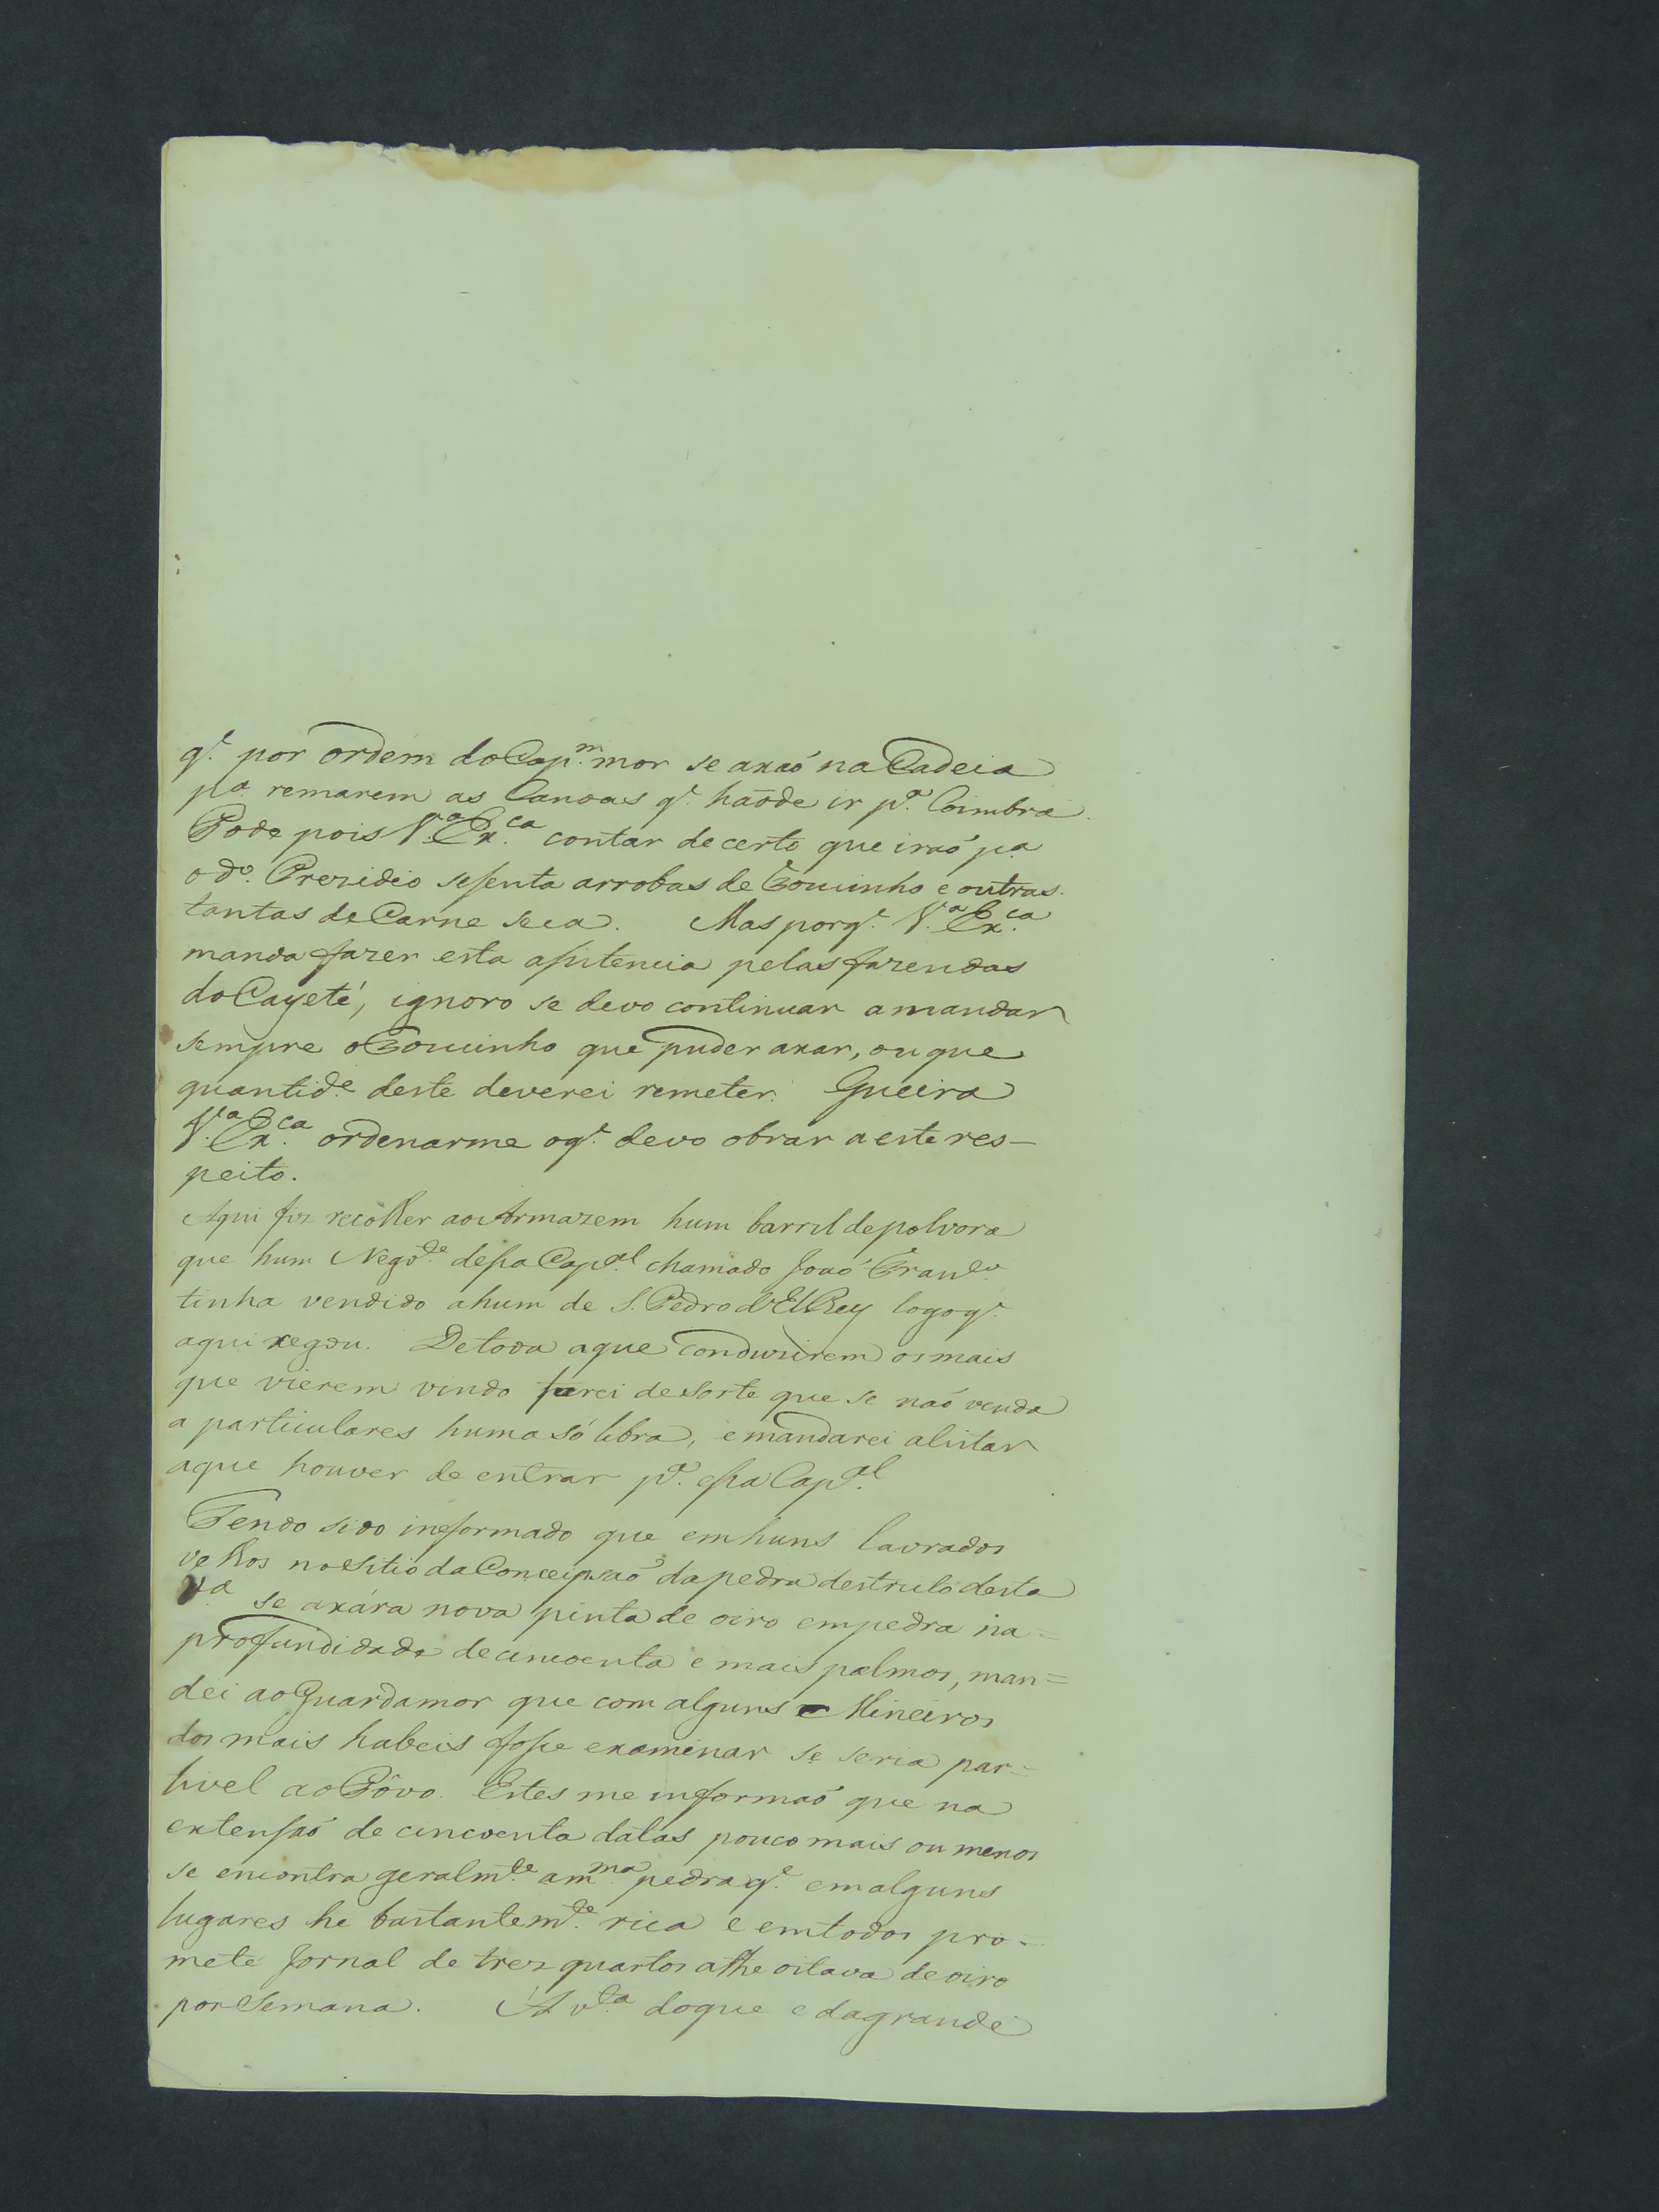 q.e por ordem do Cap.m mor se axaó na Cadeia
p.a remarem as Canoas q.e haõde ir p.a Coimbra.
Pode pois V.a Ex.ca contar decerto que iraó p.a
o d.o Prezidio sesenta arrobas de Toucinho e outras
tantas de Carne seca. Mas porq.e V.a Ex.ca
manda fazer esta asistencia pelas fazendas
do Cayeté, ignoro se devo continuar a mandar
sempre o Toucinho que puder axar, ou que
quantid.e deste deverei remeter. Queira
V.a Ex.ca ordenarme oq.e devo obrar a este res-
peito.
Aqui fiz recolher ao Armazem hum barril de polvora
que hum Nego.de desa Cap.al chamado Joaó
tinha vendido ahum de S. Pedro d'ElRey logo q.e
aqui xegou. Detoda aque conduzirem os mais
que vierem vindo farei desorte que se naó venda
a particulares huma só libra, e mandarei alistar
aque houver de entrar p.a esa Cap.al
Tendo sido informado que em huns lavrados
velhos noSitio da Conceipsaó da pedra destrito desta
V.a se axára nova pinta de oiro empedra na=
profundidade de cincoenta e mais palmos, man=
dei ao Guardamor que com alguns Mineiros
dos mais habeis fose examinar se seria par=
tivel ao Pôvo. Estes me informaó que na
extensaó de cincoenta datas pouco mais ou menos
se encontra geralm.te am.ma pedra q.e em alguns
lugares he bastantem.te rica e emtodos pro-
mete Jornal de trez quartos athe oitava de oiro
por Semana. A v.ta doque e dagrande